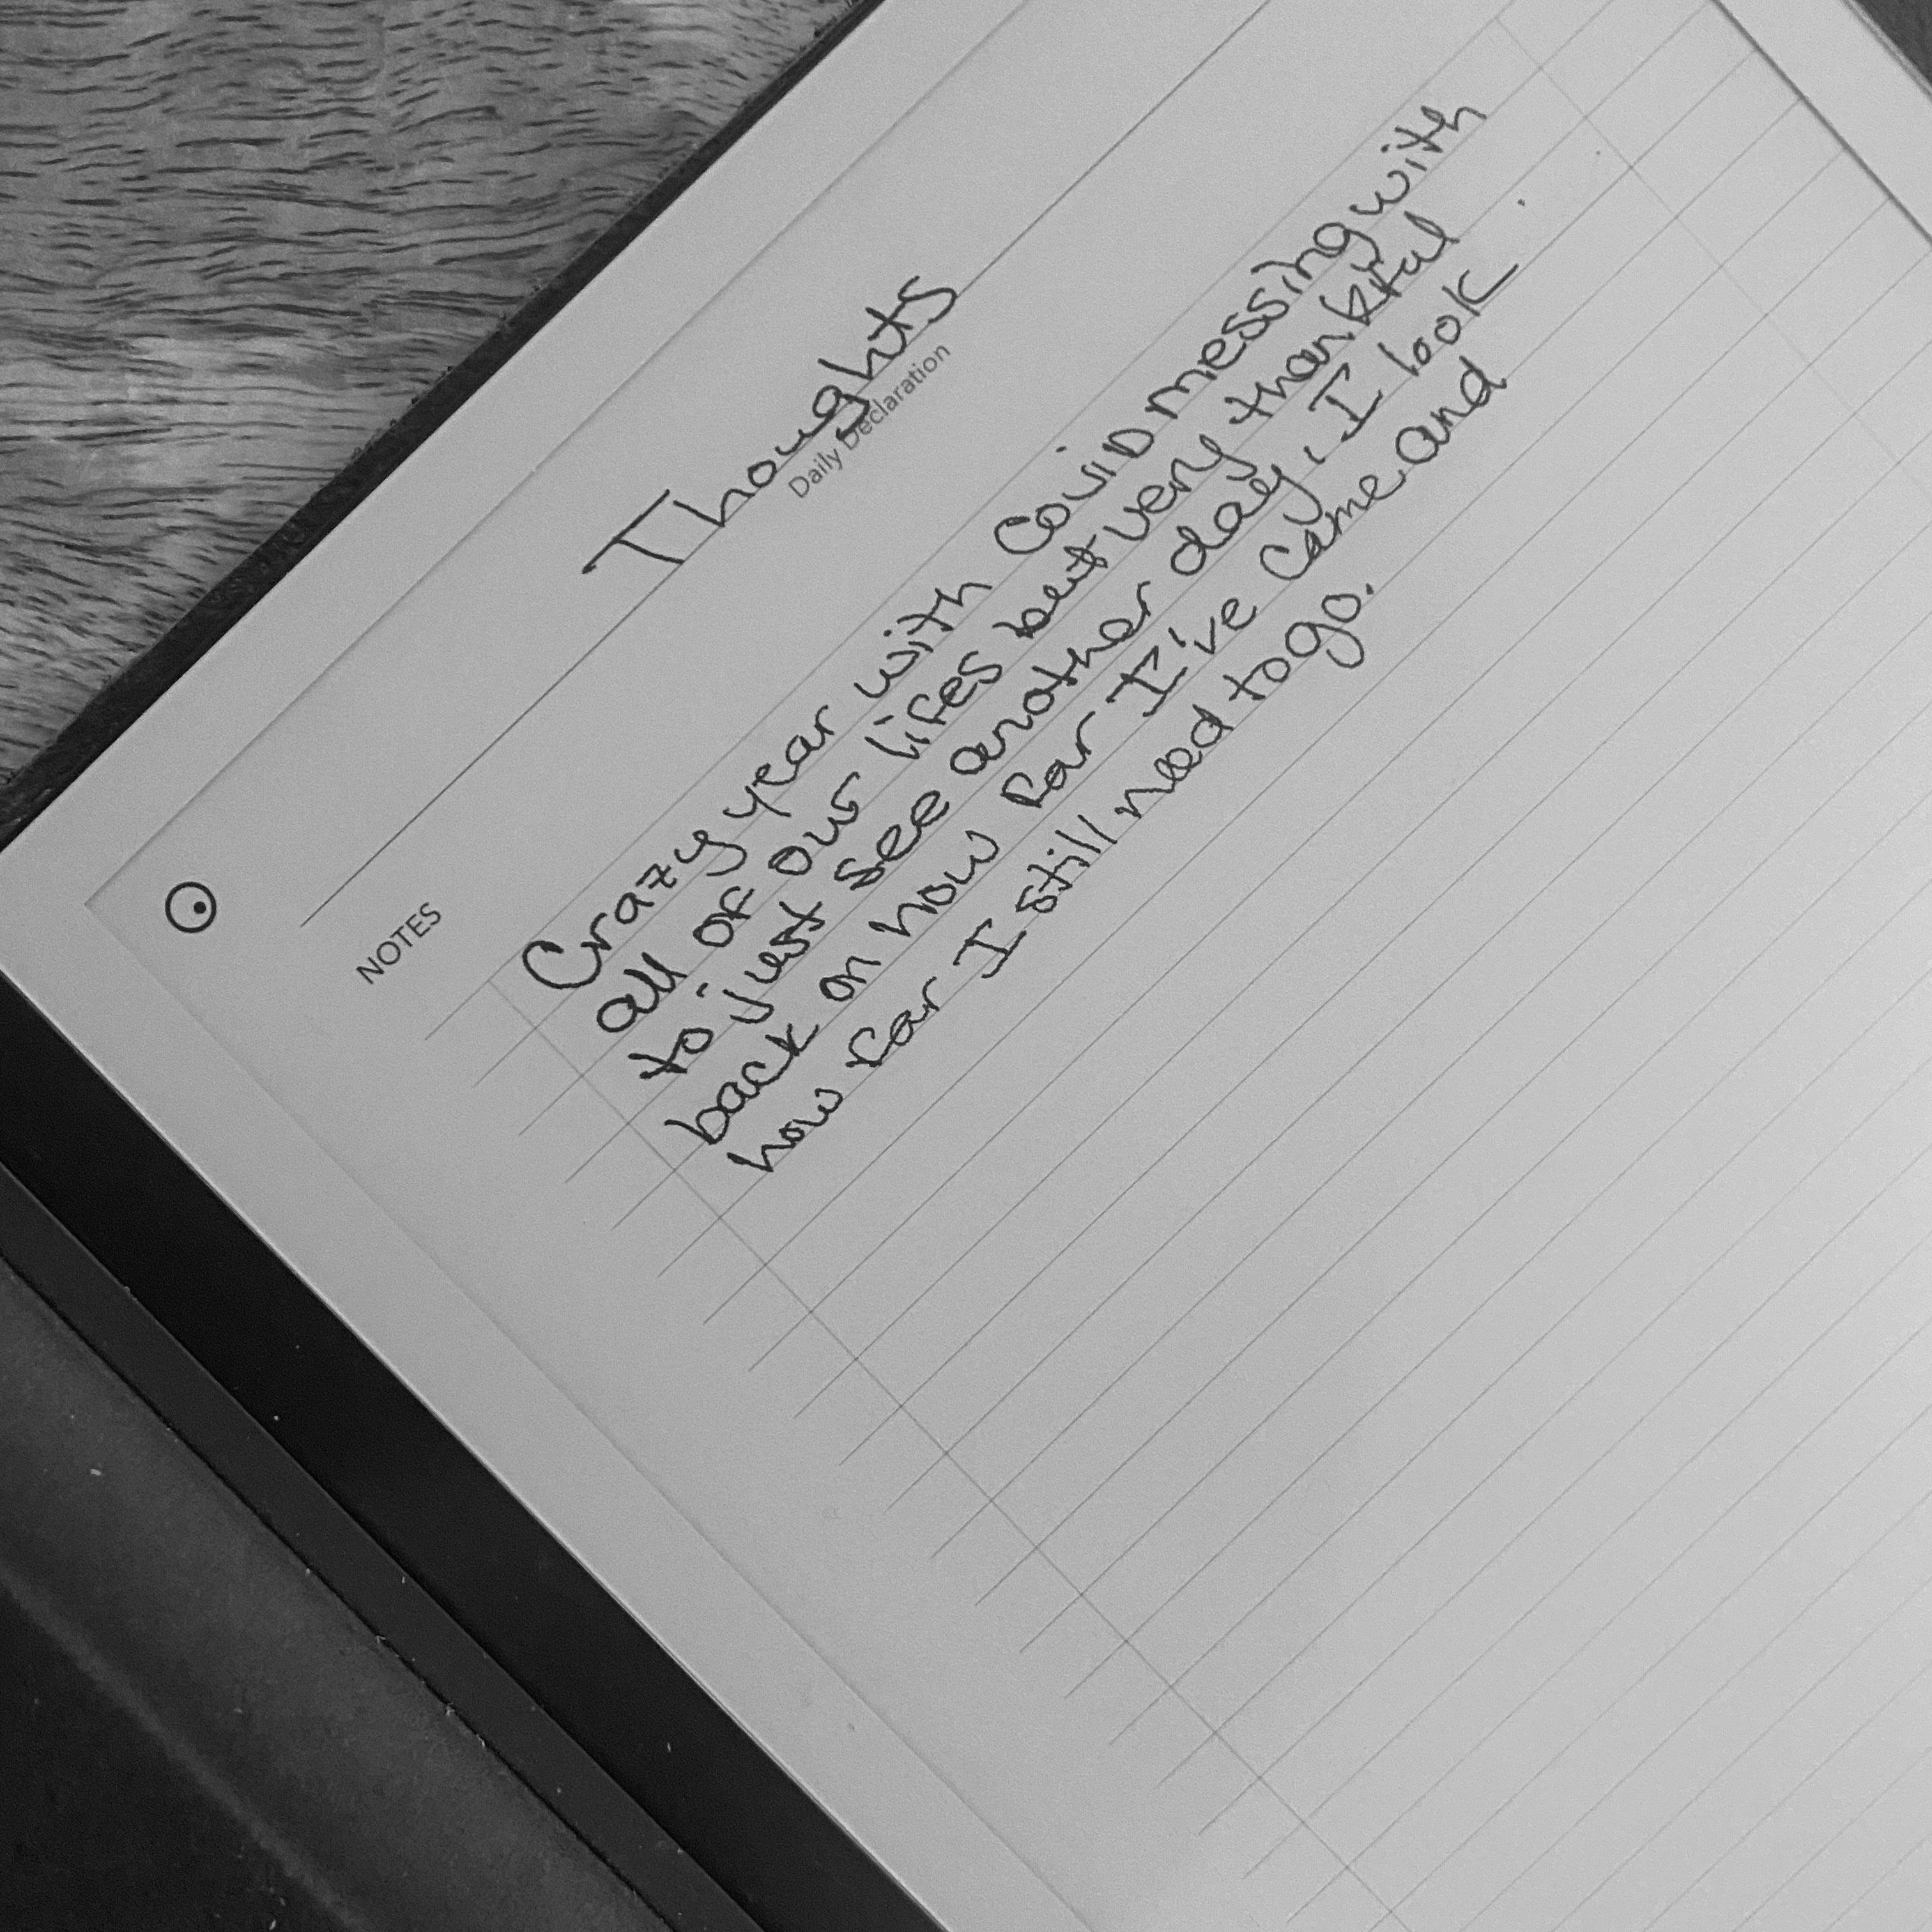 Thoughts
Daily Declaration
NOTES
Crazy year with CoviD messing with
all of our lifes but very thankful
to just see another day, I look
back on how far I've came and
how far I still need to go.